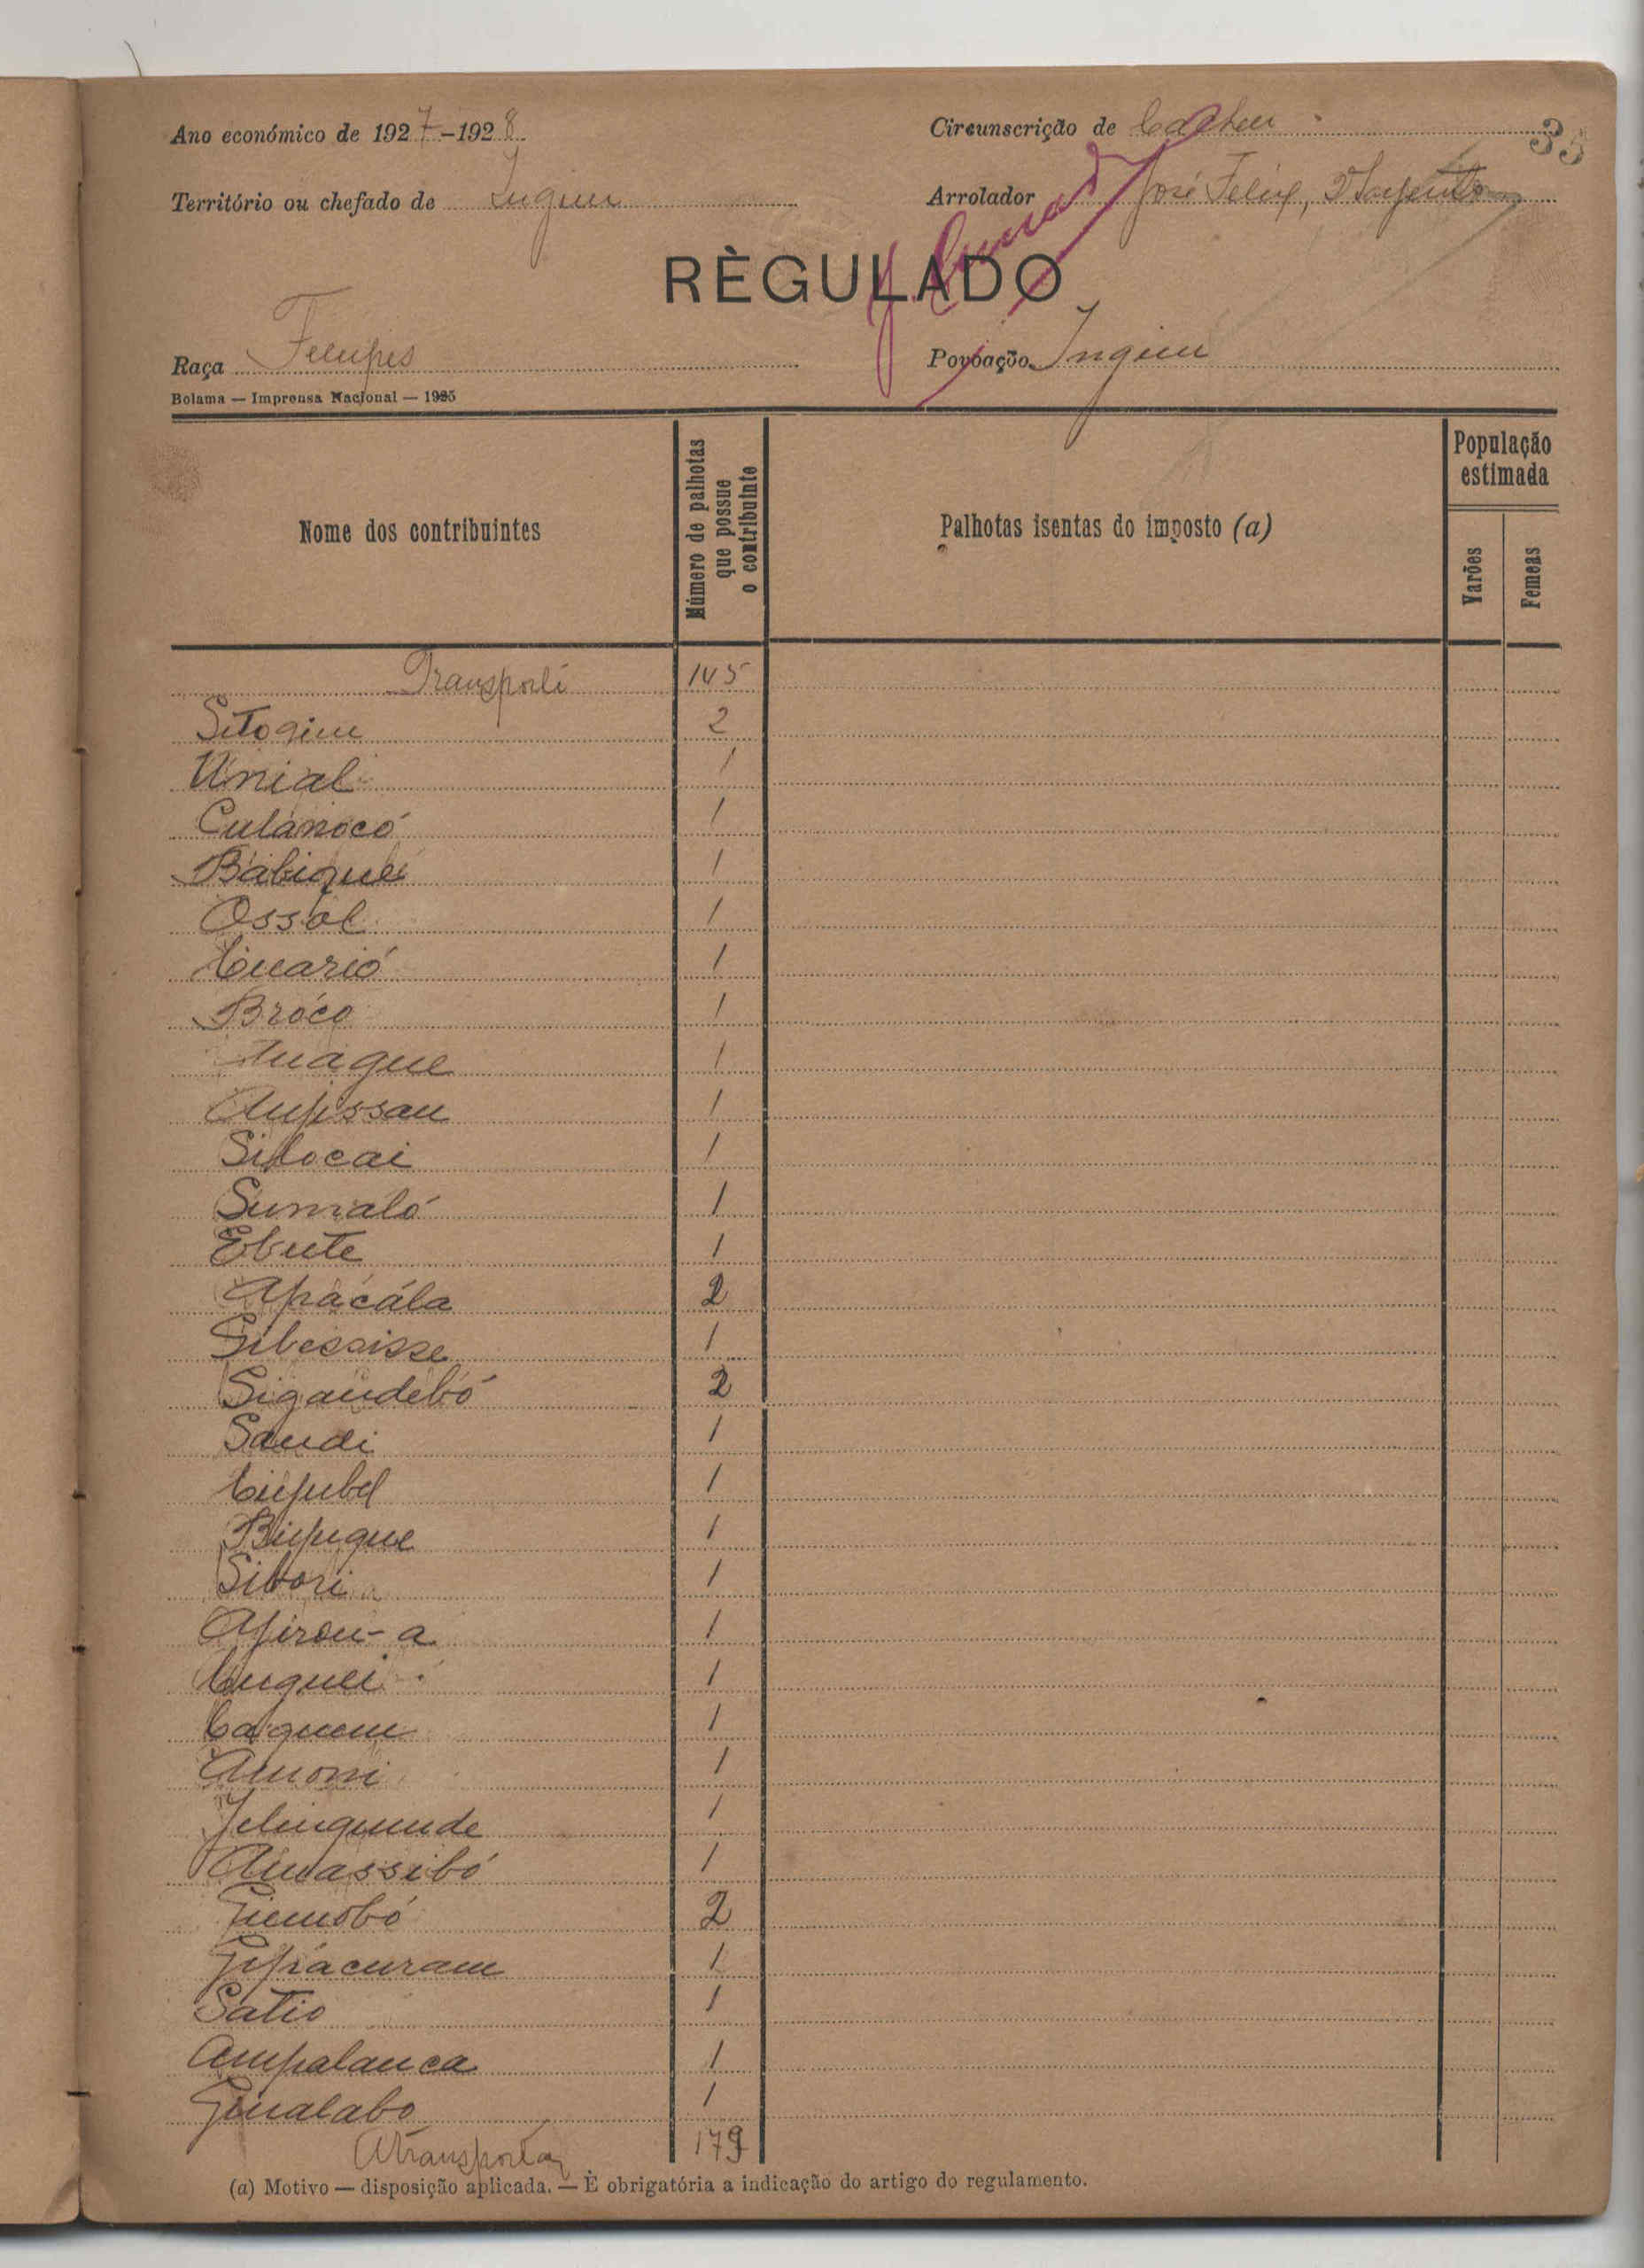 Ano económico de 1927-1928
Circunscrição de Cacheu
35
Território ou chefado de Jugim
Arrolador José Felix,
RÈGULADO
Raça Felupes
Povoação Jugim
Bolama — Imprensa Nacional — 1925
Nome dos contribuintes
Número de palhotas que possue o contribuinte
Palhotas isentas do imposto (a)
População estimada
Varões
Femeas
Transporte 145
Sitogim 2
Unial 1
Culánocó 1
Babiqué 1
Ossol 1
Cuarió 1
Bróco 1
Anaque 1
Aupissau 1
Silocai 1
Sumaló 1
Ebute 1
Apácála 2
Sibessisse 1
Sigandebó 2
Saudi 1
Cujubel 1
Bujuque 1
Sibori 1
1
Cuquei 1
Caquem 1
Amoni 1
1
Amassibó 1
2
1
Satio 1
Ampalanca 1
Gualabo 1
A transportar 179
(a) Motivo — disposição aplicada. — È obrigatória a indicação do artigo do regulamento.